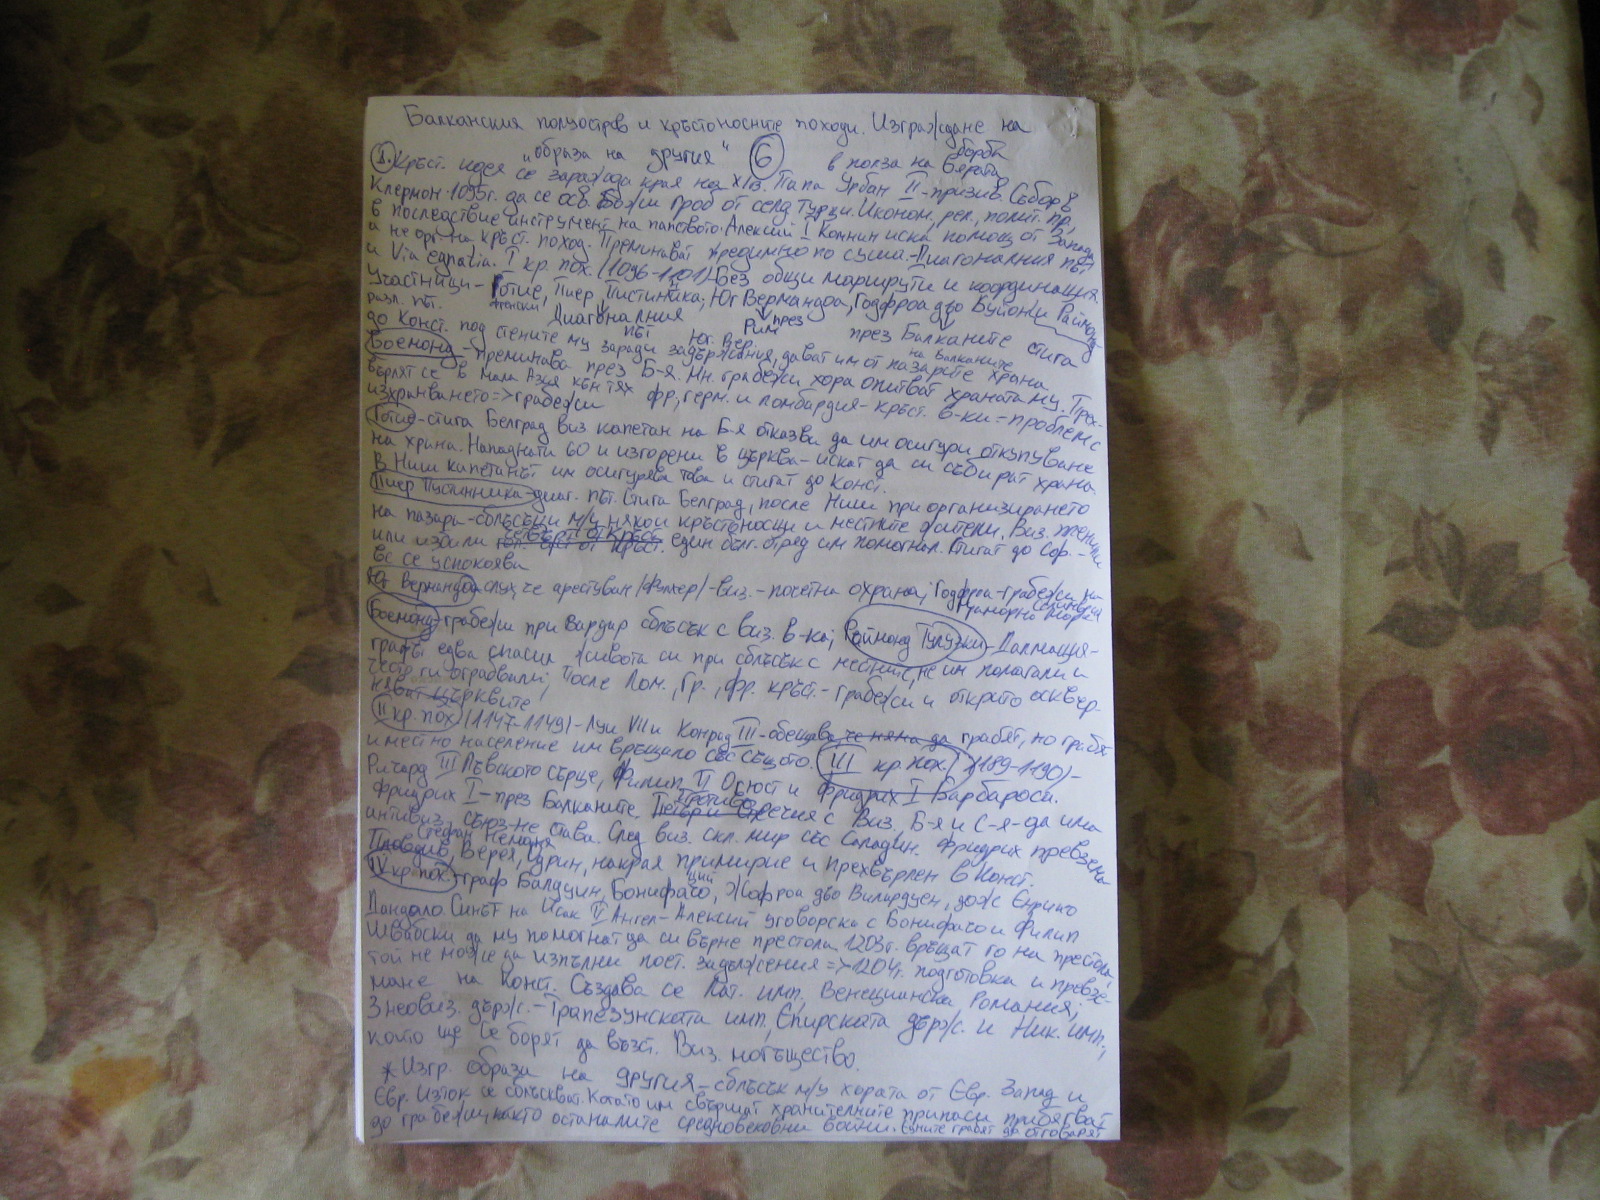 Балканския полуостров и кръстоносните походи. Изграждане на
"образа на другия" 6
в полза на борба вярата
1. Кръст. идея се заражда края на XI в. Папа Урбан II - призив. Събор в
Клермон 1095г. да се осв. Божи гроб от селд. турци. Иконом., рел., полит. пр.,
в последствие инструмент на папството. Алексий I Комнин иска помощ от Запада
а не орг. на кръст. поход. Преминават предимно по суша. - Диагоналния път
и Via egnatia. I кр. пох. (1096-1101) - Без общи маршрути и координация.
Участници - Готие, Пиер Пустинника, Юг Вермандоа, Годфроа дьо Буйон и Раймонд
разл. път. Диагоналния път Юг. Вер. Рим през през Балканите стига
до Конст. под стените му заради задържания, дават им от пазарите храна
Боемонд - преминава през Б-я. Мн. грабежи хора опитват храната му. Пре-
върлят се в Мала Азия към тях фр., герм. и ломбардия - кръст. в-ки - проблем с
изхранването => грабежи на Балканите
Готие - стига Белград виз капетан на Б-я отказва да им осигури откупуване
на храна. Нападнати 60 и изгорени в църква - искат да си събират храна.
В Ниш капетанът им осигурява това и стигат до Конст.
Пиер Пустинника - диаг. път. Стига Белград, после Ниш при организирането
на пазара - сблъсъци м/у някои кръстоносци и местните жители. Виз.
или избили един бълг. отряд им помогнал. Стигат до Соф. -
вс се успокоява
Юг Вермандоа слух че арестуван /Фулхер/ - виз. - почетна охрана; Годфроа - грабежи на
Мраморно море
Боемонд - грабежи при Вардар сблъсък с виз. в-ка; Раймонд Тулузки - Далмация -
графът едва спасил живота си при сблъсък с местните, не им помагали и
често ги ограбвали; После Лом., Гр., фр. кръст. - грабежи и открито оскверн-
няват църквите
II кр. пох (1147-1149) - Луи VII и Конрад III - обещава, че няма да грабят, но грабят
и местно население им връщало със същото. III кр. пох. (1189-1190) -
Ричард III Лъвското сърце, Филип II Огюст и Фридрих I Барбароса.
Фридрих I - през Балканите. Противоречия с Виз. Б-я и С-я - да има
антивиз. съюз - не става. След виз. скл. мир със Саладин. Фридрих превзема
Стефан Неманя
Пловдив, Верея, Одрин, накрая примирие и прехвърлен в Конст.
IV кр. пох. - граф Балдуин, Бонифачо, Жофроа дьо Вилардуен, дож Енрико
Дандоло. Синът на Исак II Ангел - Алексий уговорка с Бонифачо и Филип
Швабски да му помогнат да си върне престола. 1203г. връщат го на престола,
той не може да изпълни пост. задължения => 1204г. подготовка и превзе-
мане на Конст. Създава се Лат. имп., Венецианска Романия;
3 неовиз. държ. - Трапезунската имп., Епирската държ. и Ник. имп.,
които ще се борят да възст. Виз. могъщество.
* Изгр. образа на другия - сблъсък м/у хората от Евр. Запад и
Евр. Изток се сблъскват. Когато им свършат хранителните припаси прибягват
до грабежи, както останалите средновековни войни. Едните грабят да отговарят